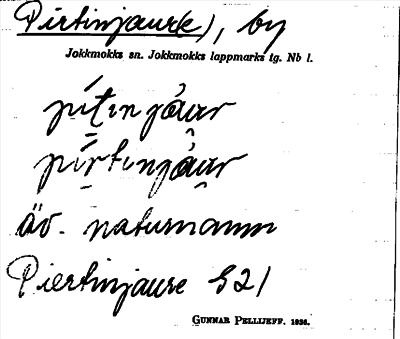 Pirtinjaur(e), by
Jokkmokks sn. Jokkmokks lappmarks tg. Nb l.
pítinjàur
pírtinjàur
äv. naturnamn
Piertinjaure S21
GUNNAR PELLIJEFF. 1936.